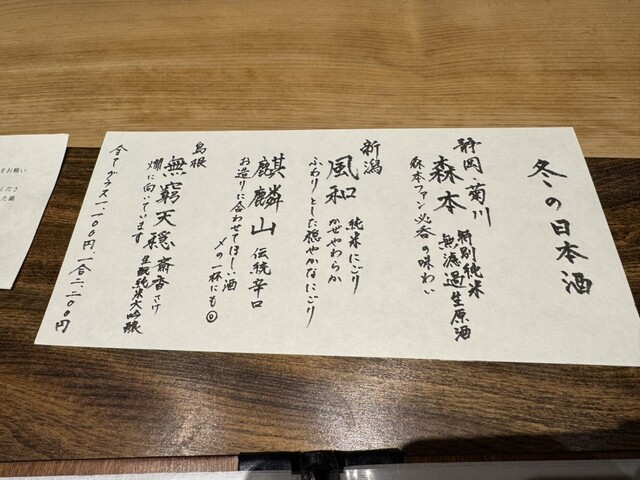 冬の日本酒
静岡・菊川
森本 特別純米
無濾過生原酒
森本ファン必呑の味わい
新潟
風和 純米にごり
かぜやわらか
ふわりとした穏やかなにごり
麒麟山 伝統辛口
お造りに合わせてほしい酒
〆の一杯にも◎
島根
無窮天穏 齋香さけ
生酛純米大吟醸
燗に向いています
全てグラス一、一〇〇円、一合二、二〇〇円
をお願い
くださ